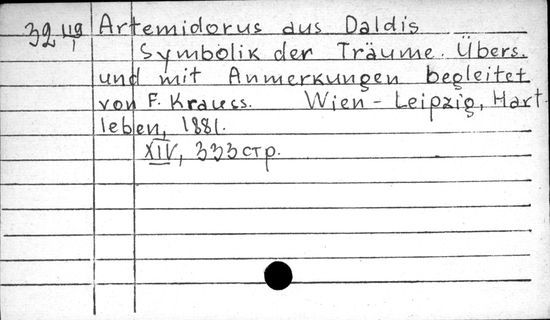 Artemidorus aus Daldis
Symbolik der Träume. Übers.
und mit Anmerkungen begleitet
von F. Krauss. Wien - Leipzig, Hart
leben, 1881.
XIV, 333 стр.